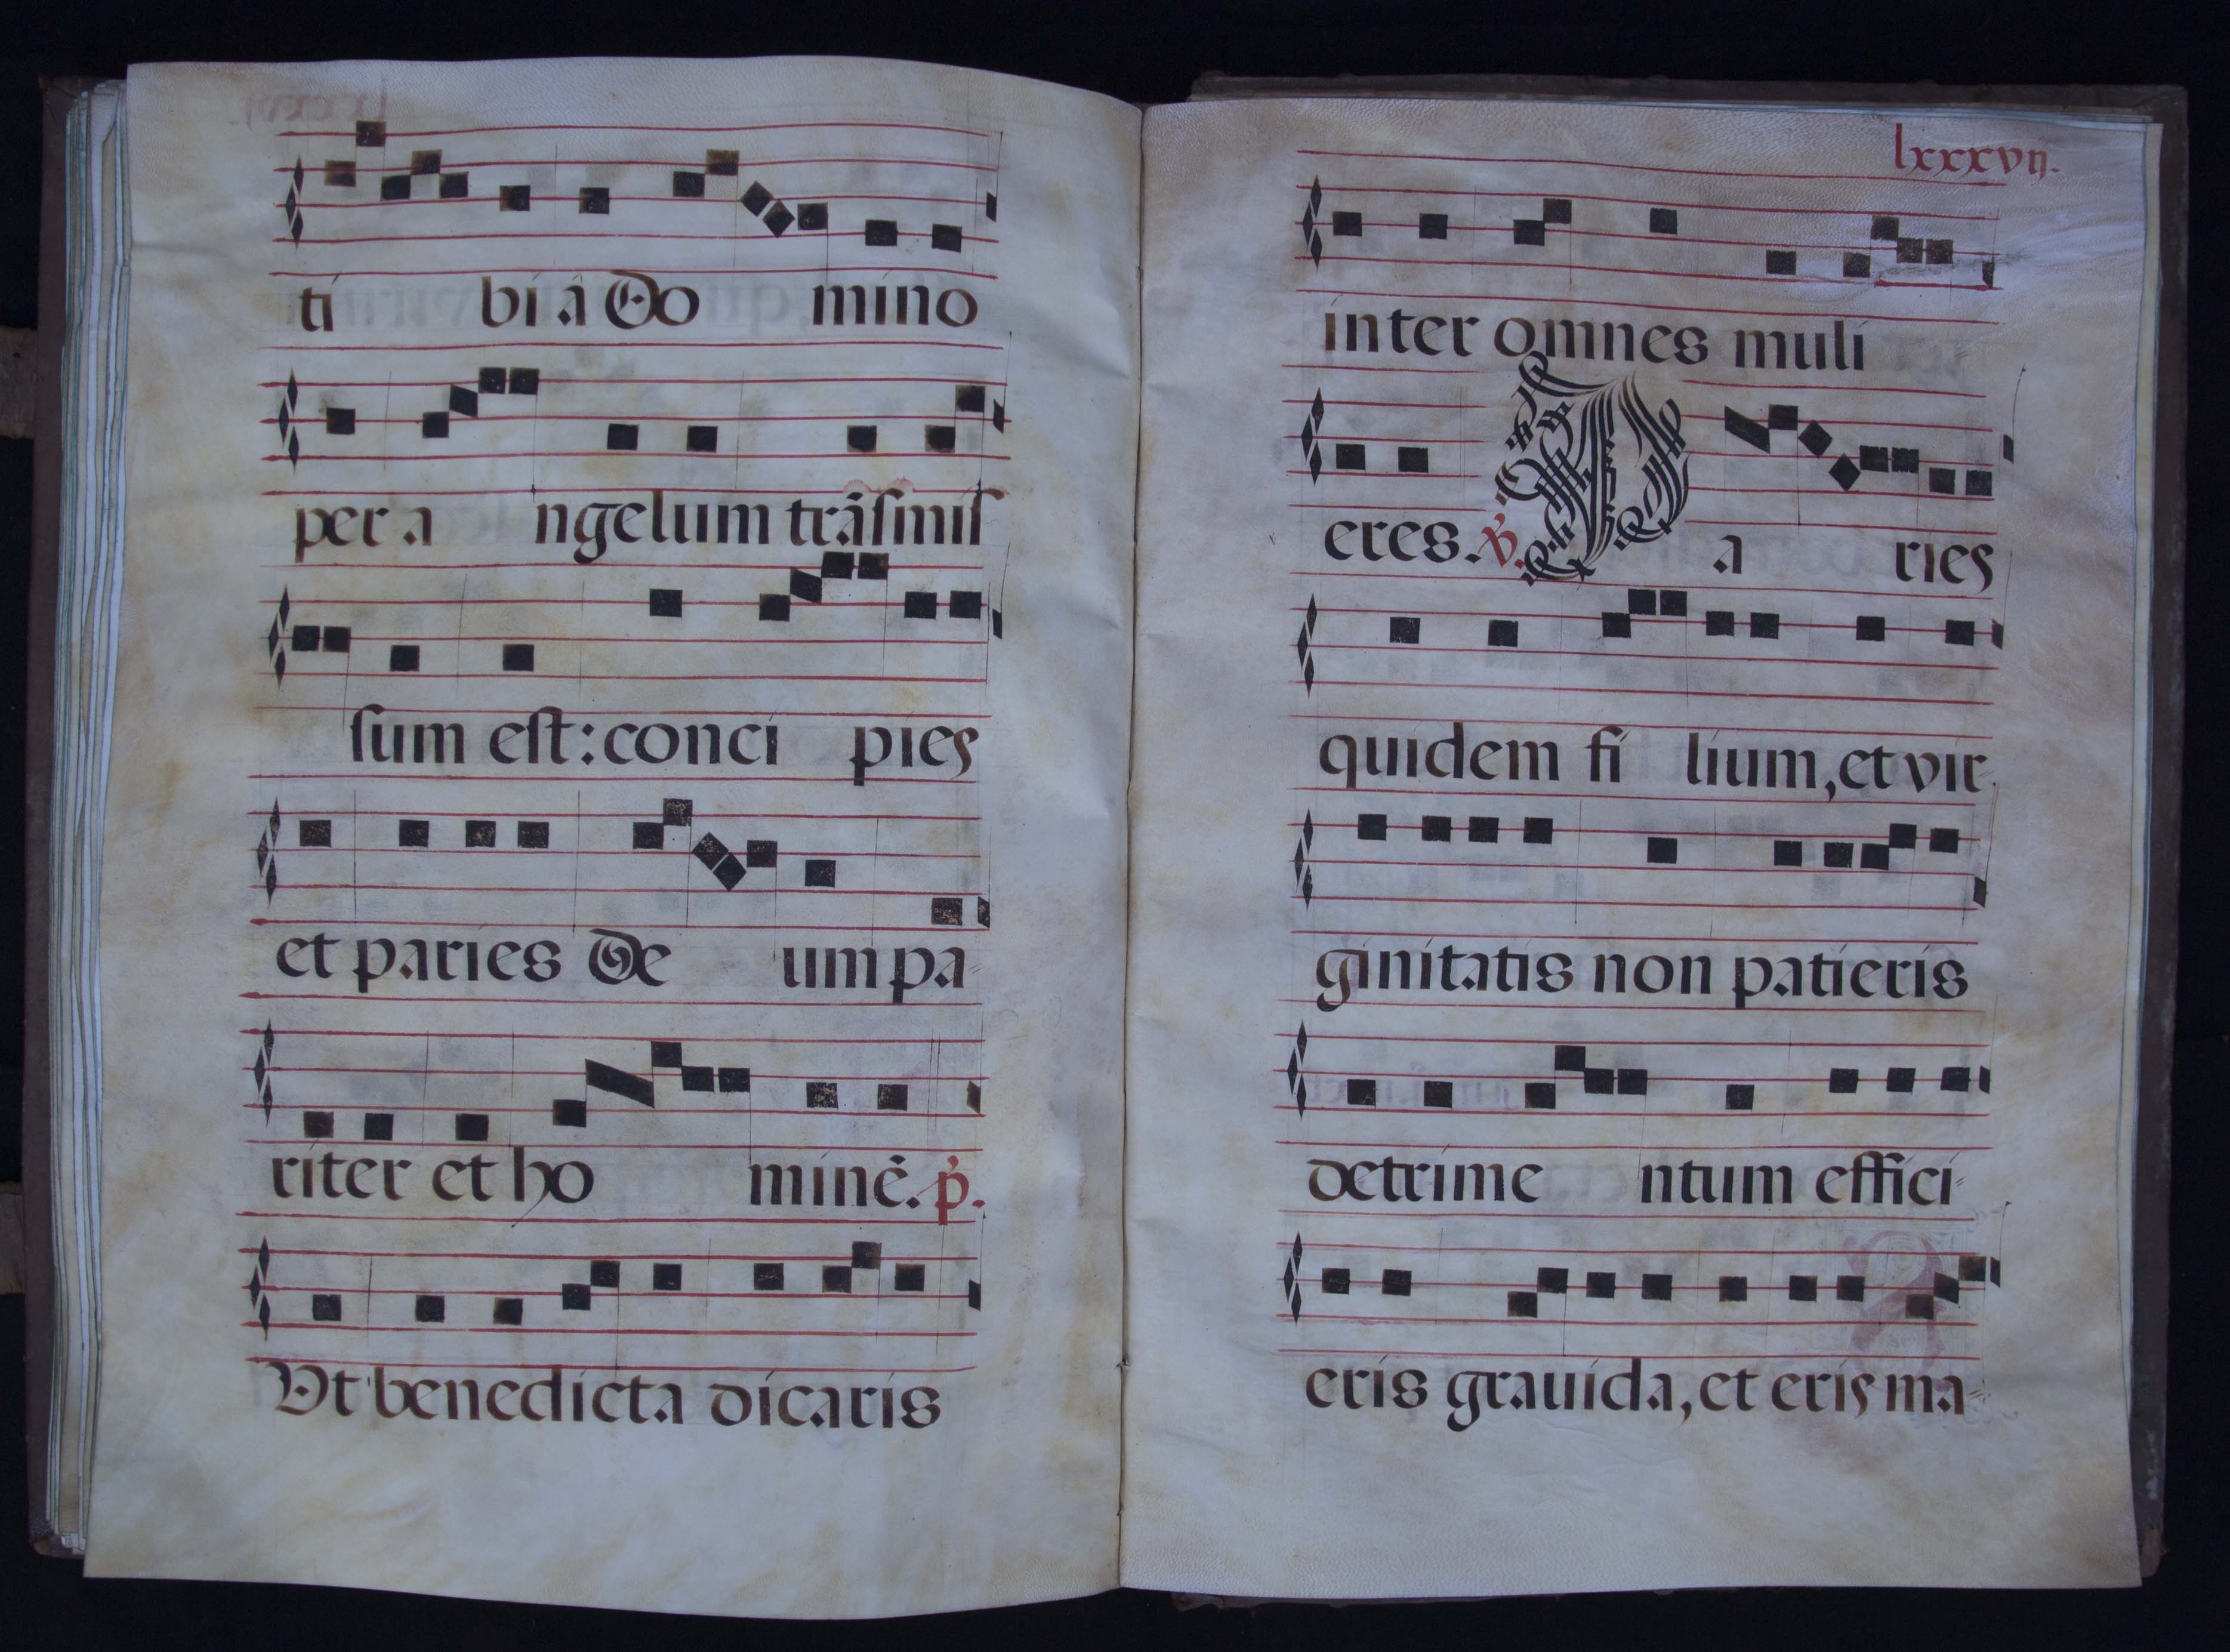 ti bi a Do mino
per a ngelum trãſmiſ
ſum eſt: conci pies
et paries De um pa
riter et ho minẽ. p̓.
Vt benedicta dicaris
lxxxvij.
inter omnes muli
eres. v̓. P a ries
quidem fi lium, et vir
ginitatis non patieris
detrime ntum effici
eris grauida, et eris ma